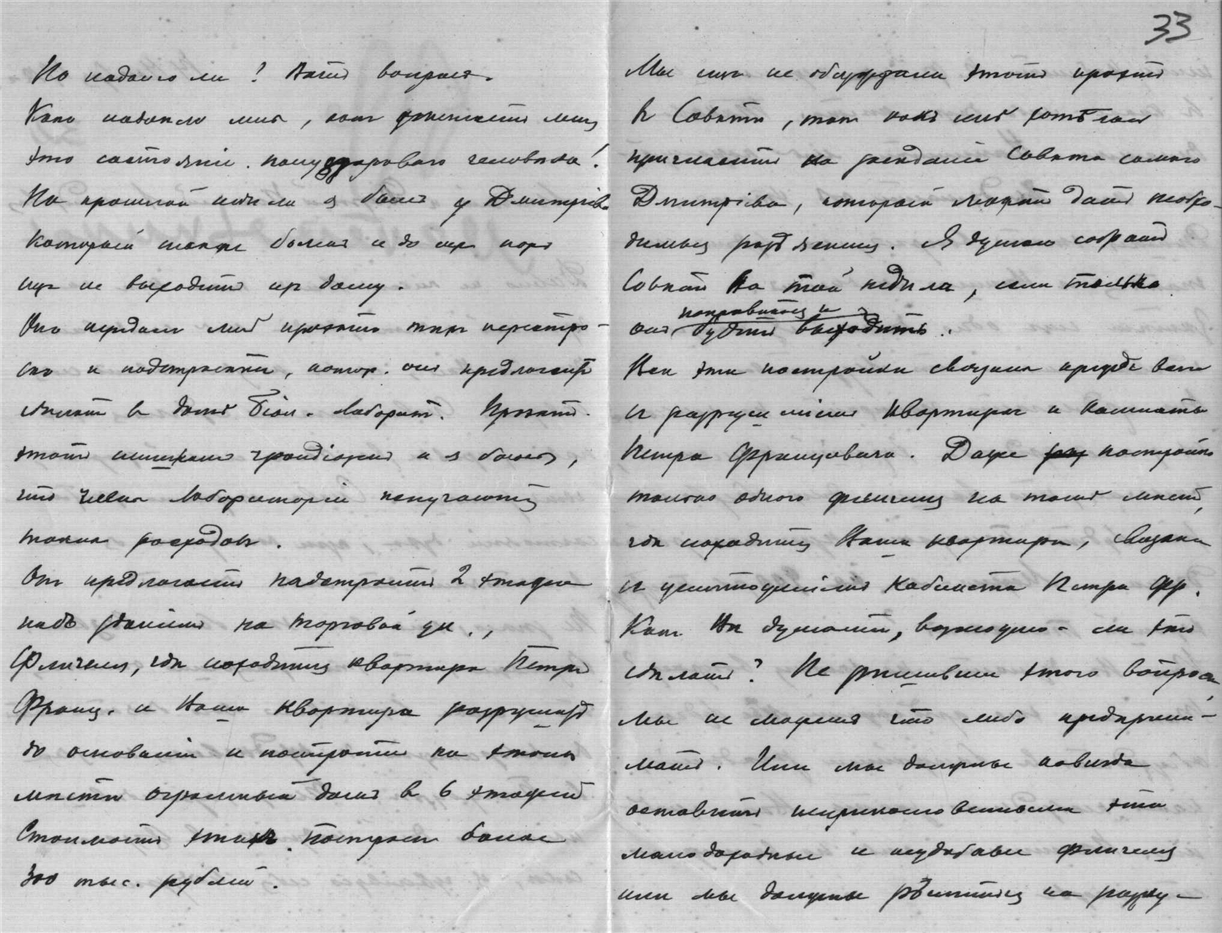 Но надолго ли! Вотъ вопросъ.
Какъ надоѣло мнѣ, какъ
это состояніе полуздороваго человѣка!
На прошлой недѣлѣ я былъ у Дмитріева
который также боленъ и до сихъ поръ
еще не выходитъ изъ дому.
Онъ передалъ мнѣ проэктъ тѣхъ перестро-
екъ и надстроекъ, котор. онъ предлагаетъ
сдѣлать въ домѣ Біол. Лаборат. Проэкт.
этотъ грандіозенъ и я боюсь,
что члены Лабораторіи испугаются
такихъ расходовъ.
Онъ предлагаетъ надстроить 2 этажа
надъ зданіемъ на Торговой ул.,
Флигель, гдѣ находится квартира Петра
Франц. и Ваша квартира разрушить
до основанія и построить на этомъ
мѣстѣ огромный домъ въ 6 этажей
Стоимость этихъ построекъ болѣе
300 тыс. рублей.
33
Мы еще не обсуждали этотъ проэктъ
въ Совѣтѣ, такъ какъ мнѣ хотѣлось
пригласить на засѣданіе Совѣта самого
Дмитріева, который можетъ дать необхо-
димыя разъясненія. Я думаю собрать
Совѣтъ на той недѣлѣ, если только
поправится и
онъ будетъ выходить.
Всѣ эти постройки связаны прежде всего
съ разрушеніемъ квартиры и комнаты
Петра Францовича. Даже постройка
только одного флигеля на томъ мѣстѣ,
гдѣ находится Ваша квартира, связана
съ уничтоженіемъ кабинета Петра Фр.
Какъ Вы думаете, возможно-ли это
сдѣлать? Не рѣшивши этого вопроса,
мы не можемъ что либо предприни-
мать. Или мы должны навсегда
оставить неприкосновенными эти
малодоходные и неудобные флигеля
или мы должны рѣшиться на разру-